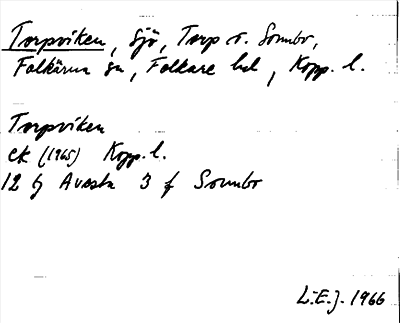 Torpviken, sjö, Torp o. Sonnbo,
Folkärna sn, Folkare hd, Kopp. l.
Torpviken
ek (1965) Kopp. l.
12 G Avesta 3 f Sonnbo
L.E.J. 1966